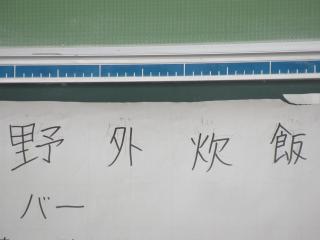 野外炊飯
バー